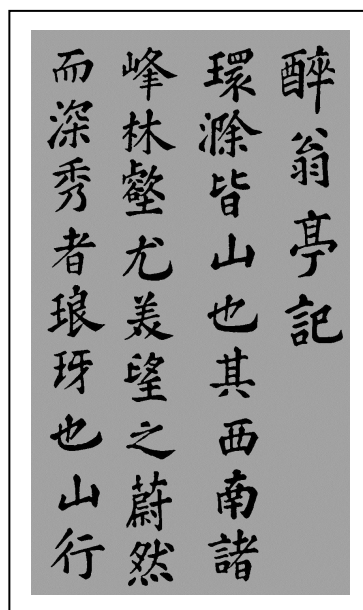 醉翁亭記
環滁皆山也其西南諸
峰林壑尤美望之蔚然
而深秀者琅玡也山行